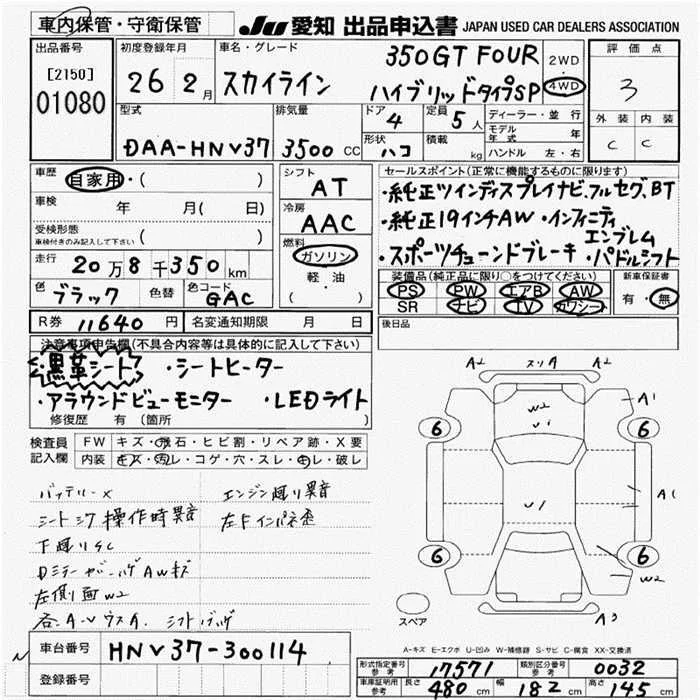 車内保管・守衛保管
JU 愛知 出品申込書 JAPAN USED CAR DEALERS ASSOCIATION
出品番号
[2150]
01080
初度登録年月
26 2月
車名・グレード
スカイライン
350GT FOUR
ハイブリッドタイプSP
2WD
・
4WD
評価点
3
外装 内装
C C
型式
DAA-HNV37
排気量
3500 CC
ドア
4
定員
5人
形状
ハコ
積載
kg
ディーラー・並行
モデル年式 年
ハンドル 左・右
車歴
自家用・( )
車検 年 月( 日)
受検形態
車検付きのみ記入して下さい ( )
走行
20万8千350km
色
ブラック
色替
色コード
GAC
シフト
AT
冷房
AAC
燃料
ガソリン
軽油
( )
セールスポイント(正常に機能するものに限ります)
・純正ツインディスプレイナビ、フルセグ、BT
・純正19インチAW ・インフィニティエンブレム
・スポーツチューンドブレーキ ・パドルシフト
装備品(純正品に限り○をつけてください)
PS PW エアB AW
SR ナビ TV カワシート
新車保証書
有・無
R券 11640円
名変通知期限 月 日
後日品
注意事項申告欄(不具合内容等は具体的に記入して下さい)
・黒革シート ・シートヒーター
・アラウンドビューモニター ・LEDライト
修復歴 有(箇所 )
検査員記入欄
FW キズ・飛石・ヒビ割・リペア跡・X要
内装 キズ・汚レ・コゲ・穴・スレ・キレ・破レ
バッテリーX
エンジン廻り異音
シートシワ 操作時異音
左Fインパネ歪
下廻りSC
左側面W2
A2 スリA A2
W2
U1
A1
6 6
U1
A1
6 6
W2
スペア
A3
A-キズ E-エクボ U-凹み W-補修跡 S-サビ C-腐食 XX-交換済
車台番号
HNV37-300114
登録番号
形式指定番号 参考
17571
類別区分番号 参考
0032
車庫証明用 参考
長さ 480cm 幅 182cm 高さ 145cm